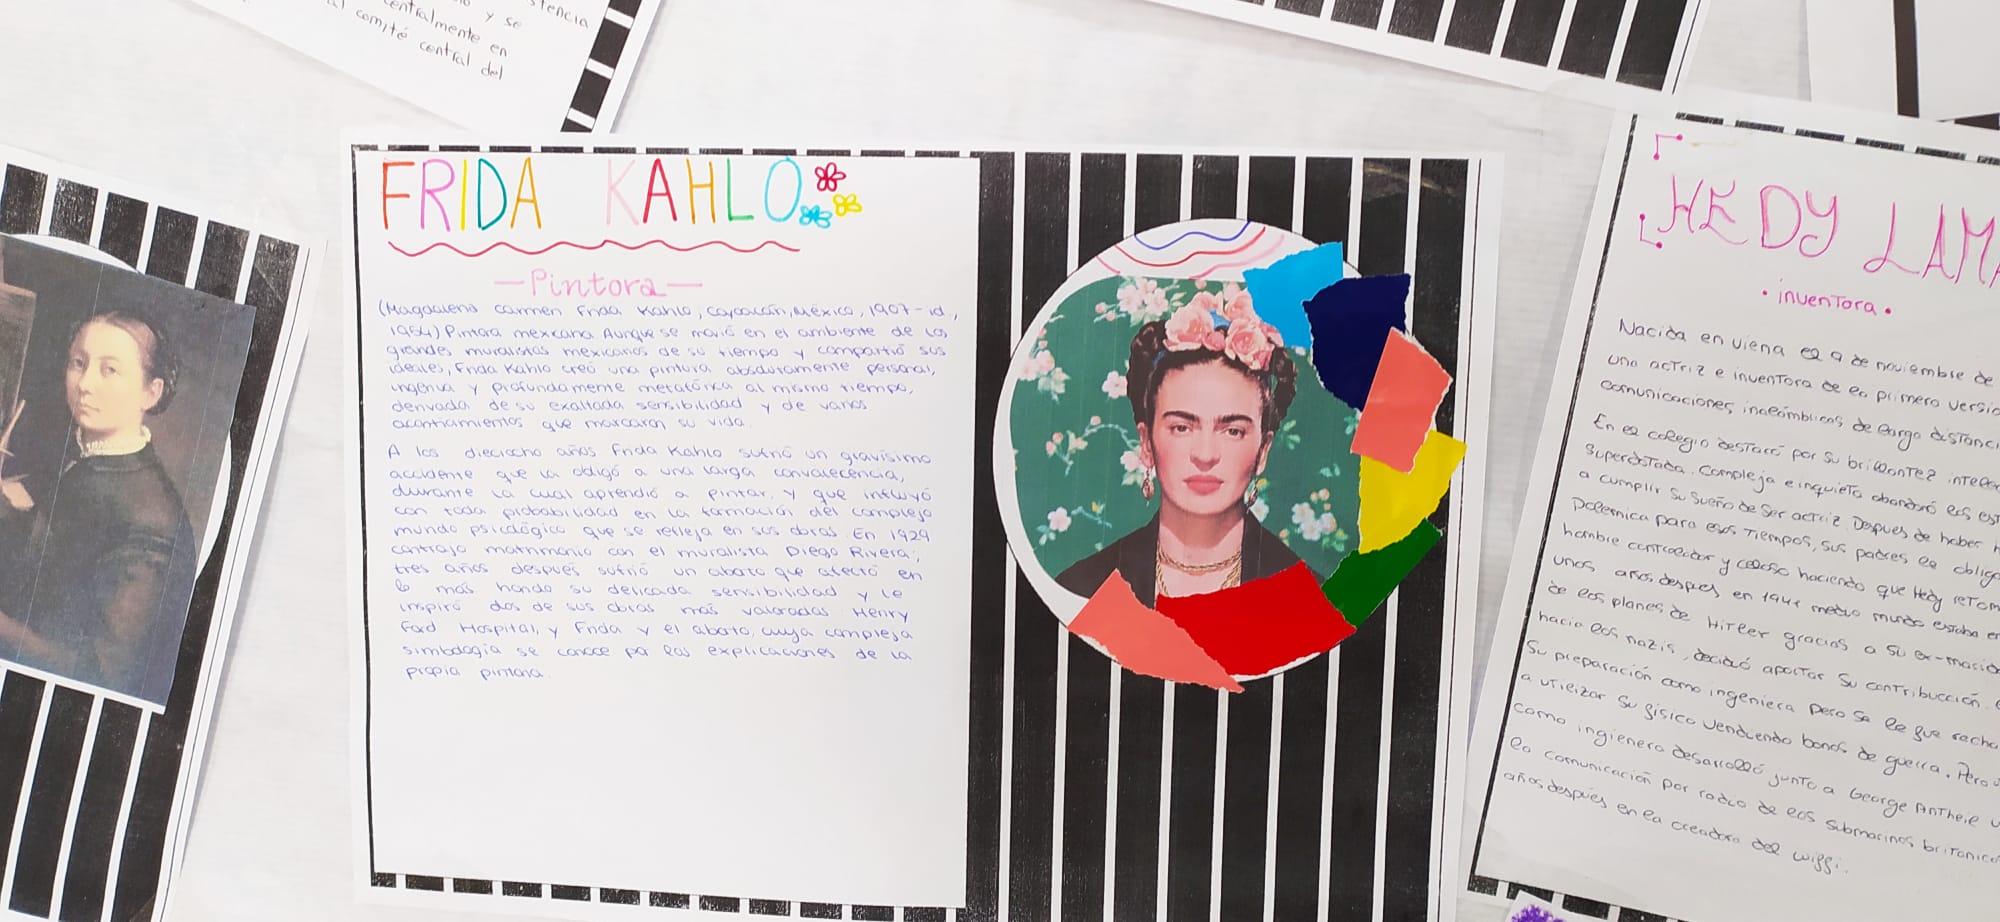 stencia
y se
centralmente en
al comité central del
FRIDA KAHLO
-Pintora-
(Magdalena Carmen Frida Kahlo, Coyoacán, México, 1907-id.,
1954) Pintora mexicana. Aunque se movió en el ambiente de los
grandes muralistas mexicanos de su tiempo y compartió sus
ideales, Frida Kahlo creó una pintura absolutamente personal,
ingenua y profundamente metafórica al mismo tiempo,
derivada de su exaltada sensibilidad y de varios
acontiamientos que marcaron su vida.
A los dieciocho años Frida Kahlo sufrió un gravísimo
accidente que la obligó a una larga convalecencia,
durante la cual aprendió a pintar, y que influyó
con toda probabilidad en la formación del complejo
mundo psicológico que se refleja en sus obras. En 1929
contrajo matrimonio con el muralista Diego Rivera;
tres años después sufrió un aborto que afectó en
lo más hondo su delicada sensibilidad y le
inspiró dos de sus obras más valoradas: Henry
Ford Hospital, y Frida y el aborto, cuya compleja
simbología se conoce por las explicaciones de la
propia pintora.
HEDY LAMA
• inventora •
Nacida en viena el 9 de noviembre de
una actriz e inventora de la primera versió
comunicaciones inalámbricas de larga distanci
En el colegio destacó por su brillantez intelec
superdotada. Compleja e inquieta abandoró los est
a cumplir su sueño de ser actriz. Despues de haber h
polemica para esos tiempos, sus padres la obliga
hombre controlador y celoso haciendo que Hedy retom
unos años despues en 1941 medio mundo estaba en
de los planes de Hitler gracias a su ex-marido
hacia los nazis, decidió aportar su contribucción.
Su preparación como ingeniera pero se le fue recha
a utilizar su fisico vendiendo bonos de guerra. Pero
como ingienera desarrolló junto a George Antheil u
la comunicación por radio de los submarinos britanico
años después en la creadora del wiffi.